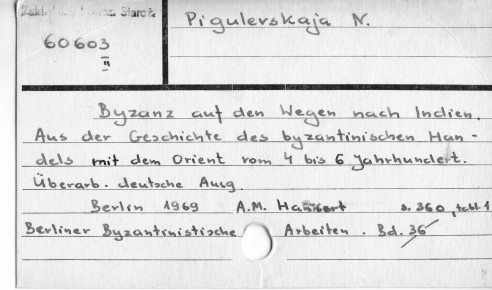 Pigulevskaja N.
60603
II
Byzanz auf den Wegen nach Indien.
Aus der Geschichte des byzantinischen Han-
dels mit dem Orient vom 4 bis 6 Jahrhundert.
Überarb. deutsche Ausg.
Berlin 1969 A.M. s. 360, tabl. 1
Berliner Byzantinistische Arbeiten. Bd. 36